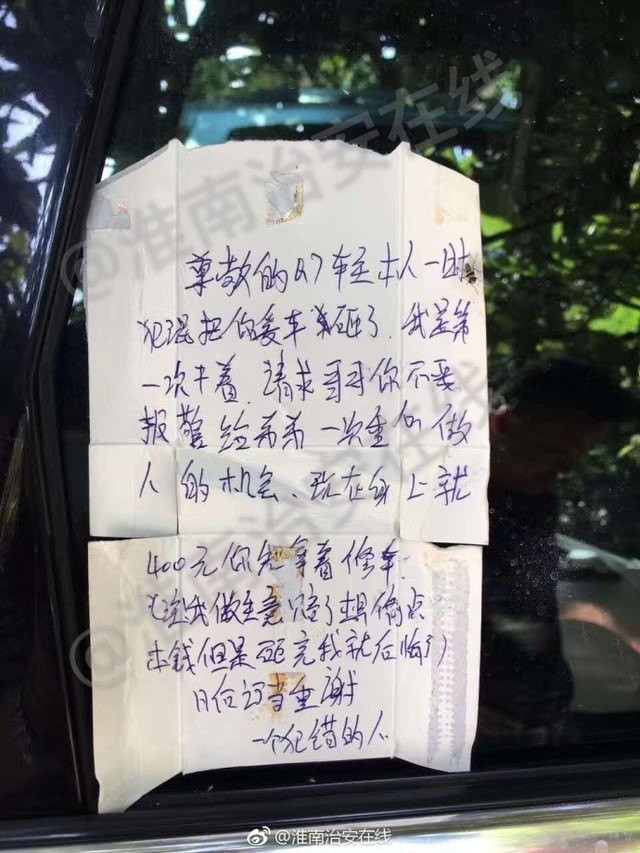 尊敬的Q7车主本人一时
犯混把你爱车砸了.我是第
一次干着.请求哥哥你不要
报警给弟弟一次重 做
人的机会、现在身上就
400元你先拿着修车.
没法我做生意赔了想偷点
本钱但是砸完我就后悔了)
日后订当重谢
一个犯错的人
@淮南治安在线
@淮南治安在线
@淮南治安在线
@淮南治安在线